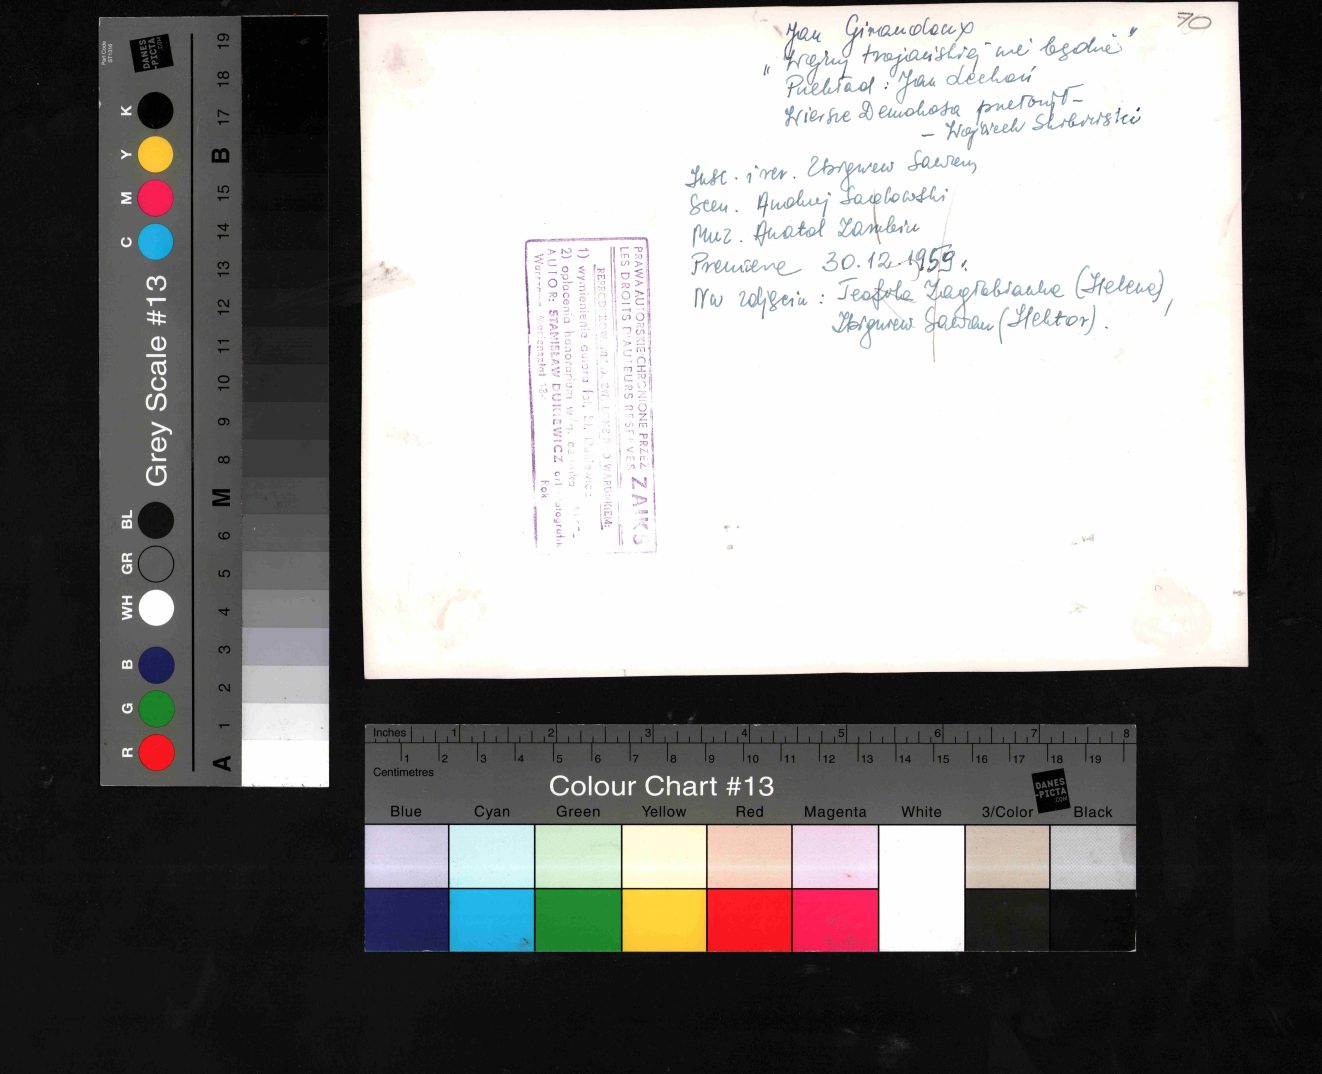 70
Jan Giraudoux
"Wojny trojańskiej nie będzie"
Przekład: Jan Lechoń
Wiersze Demokosa przełożył –
– Wojciech
Insc. i reż. Zbigniew Sawan,
Scen. Andrzej Sadowski
Muz. Anatol Zarubin
Premiera 30.12.1959.
Na zdjęciu: Teofila Zagłobianka (Helena),
Zbigniew Sawan (Hektor).
PRAWA AUTORSKIE CHRONIONE PRZEZ ZAIKS
LES DROITS D'AUTEURS RESERVES
1) wymienienie autora fot. St. Dukiewicz
2) opłacenia honorarium w/g. cennika
AUTOR: STANISŁAW DUKIEWICZ art. fotografik
Rok
Part Code
ST1316
DANES
-PICTA
.COM
Grey Scale #13
R G B WH GR BL C M Y K
A 1 2 3 4 5 6 M 8 9 10 11 12 13 14 15 B 17 18 19
Inches 1 2 3 4 5 6 7 8
1 2 3 4 5 6 7 8 9 10 11 12 13 14 15 16 17 18 19
Centimetres
Colour Chart #13
DANES
-PICTA
.COM
Blue Cyan Green Yellow Red Magenta White 3/Color Black